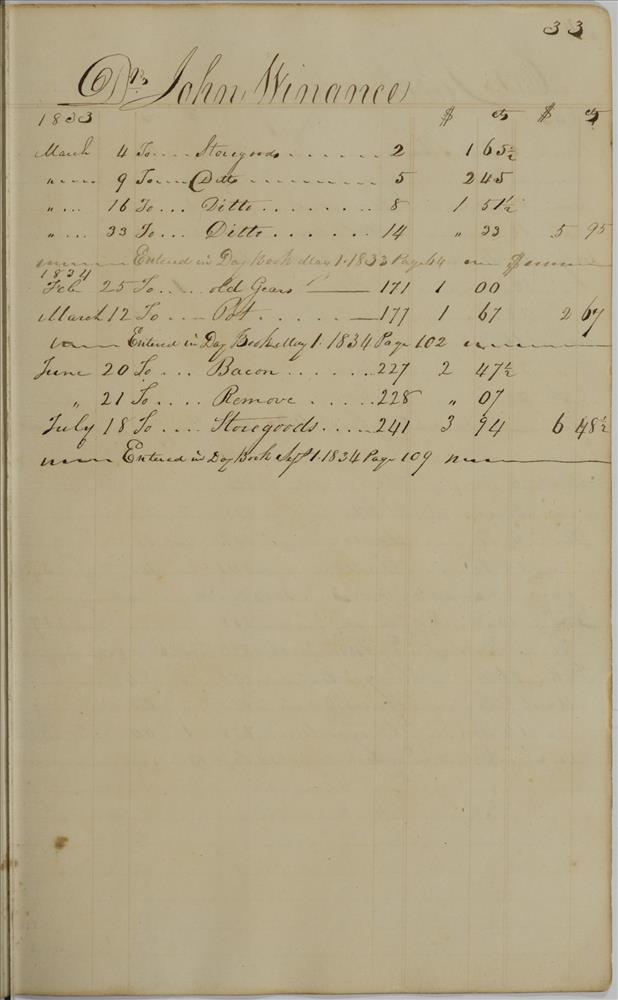 33
Dr. John Winance
1833 $ cts $ cts
March 4 To .... Storegoods ...... 2 1 65½
" .... 9 To .... Ditto 5 2 45
" ... 16 To ... Ditto ........ 8 1 51½
" ... 33 To ... Ditto ...... 14 " 33 5 95
Entered in Day Book May 1. 1833 Page 64
1834
Feb 25 To .... old Gears 171 1 00
March 12 To .... Pot ..... 177 1 67 2 67
Entered in Day Book May 1. 1834 Page 102
June 20 To ... Bacon ...... 227 2 47½
" 21 To .... Remove ..... 228 " 07
July 18 To .... Storegoods .... 241 3 94 6 48½
Entered in Day Book Sept 1. 1834 Page 109